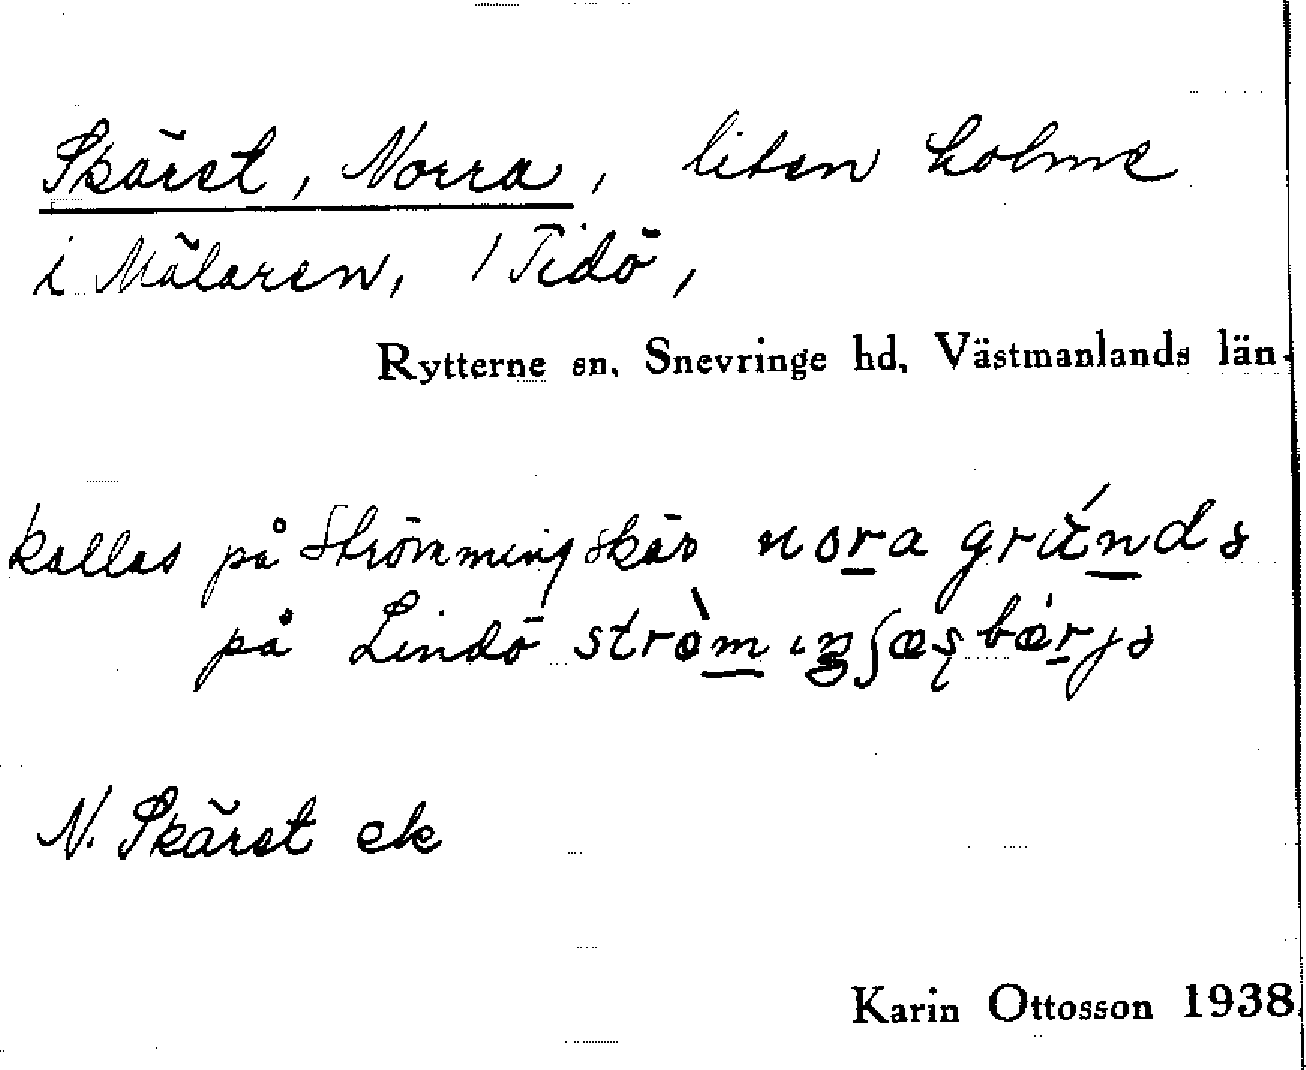 Skäret, Norra, liten holme
i Mälaren, 1 Tidö,
Rytterne sn. Snevringe hd. Västmanlands län.
kallas på Strömmingskär nora
på Lindö
N. Skäret ek
Karin Ottosson 1938